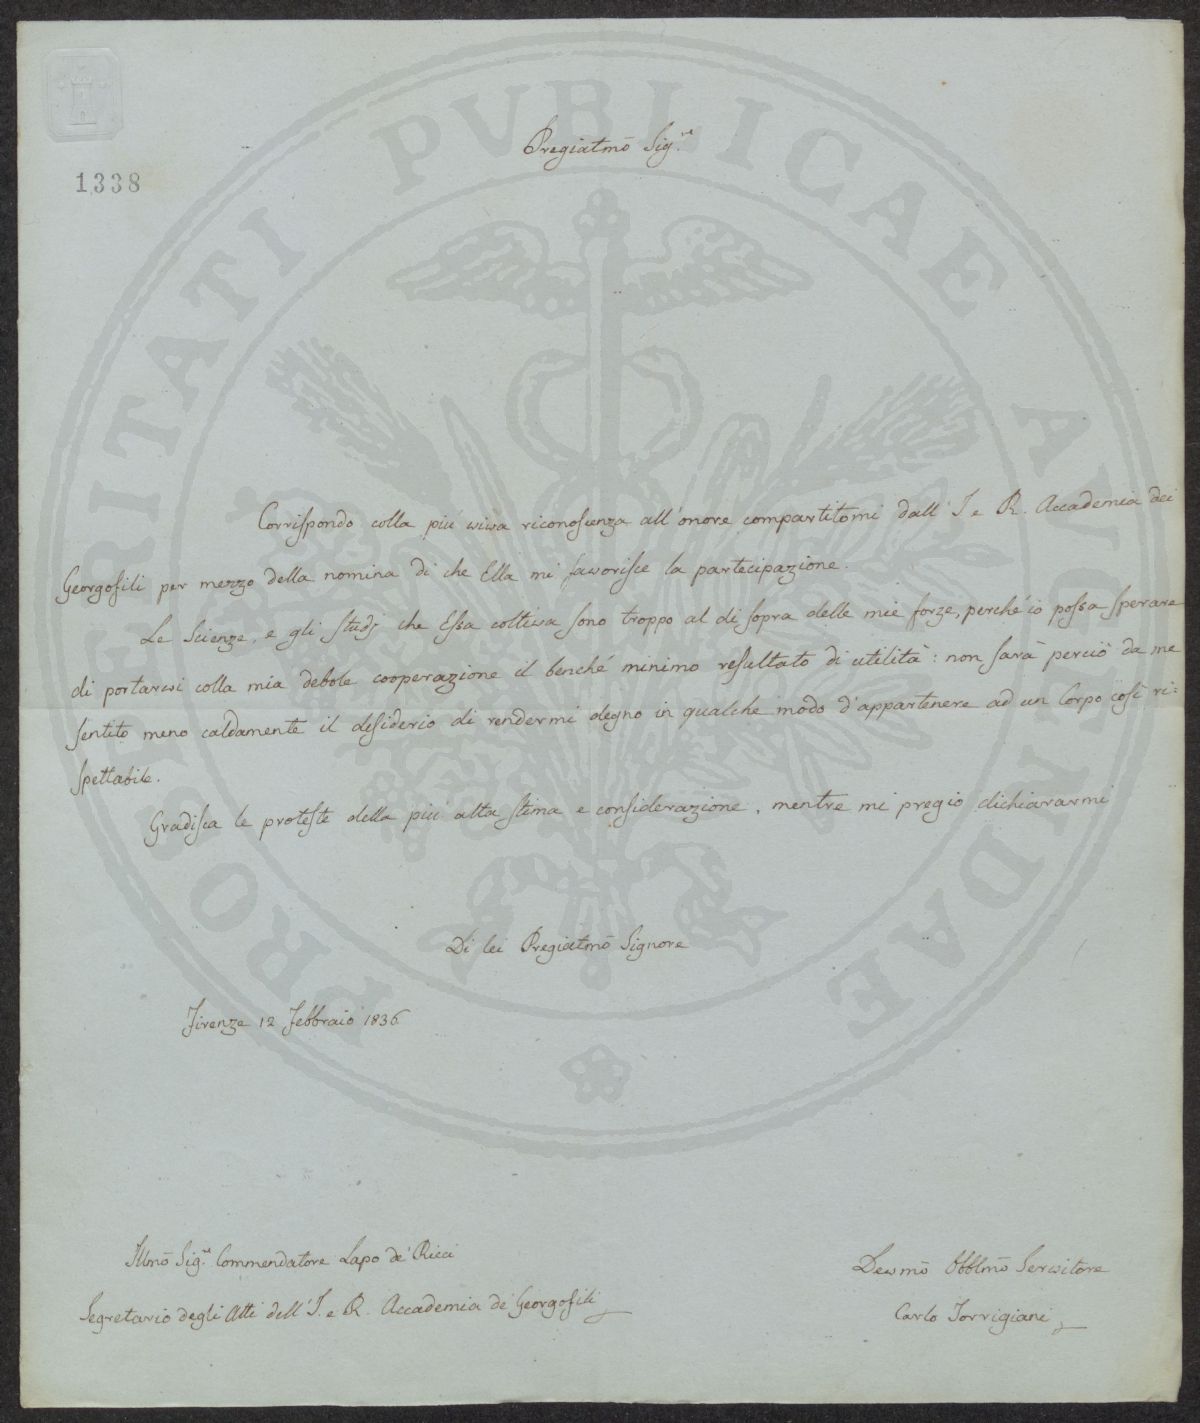 Pregiatmõ Sig.re
1338
PROSPERITATI PUBLICAE AUGENDAE
Corrispondo colla più viva riconoscenza all'onore compartitomi dall'I. e R. Accademia dei
Georgofili per mezzo della nomina di che Ella mi favorisce la partecipazione.
Le Scienze, e gli studj che Essa coltiva sono troppo al di sopra delle mie forze, perché io possa sperare
di portarvi colla mia debole cooperazione il benché minimo resultato di utilità: non sarà perciò da me
sentito meno caldamente il desiderio di rendermi degno in qualche modo d'appartenere ad un Corpo così ri=
spettabile.
Gradisca le proteste della più alta stima e considerazione, mentre mi pregio dichiararmi
Di lei Pregiatmõ Signore
Firenze 12 Febbraio 1836
Illmõ Sig.re Commendatore Lapo de' Ricci
Segretario degli Atti dell'I. e R. Accademia de' Georgofili
Devmõ Obblmõ Servitore
Carlo Torrigiani